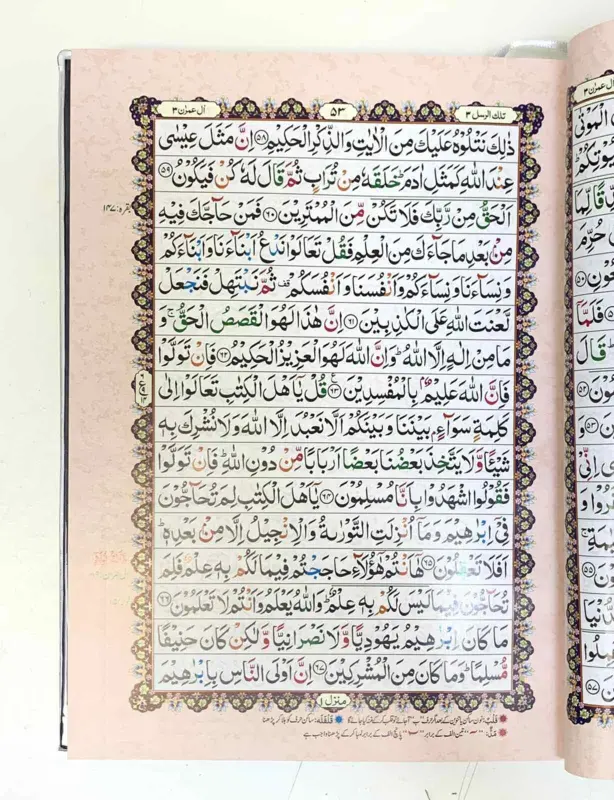 تلك الرسل ۳
۵۳
اٰل عمرٰن ۳
ذٰلِكَ نَتْلُوْهُ عَلَيْكَ مِنَ الْاٰيٰتِ وَالذِّكْرِ الْحَكِيْمِ ﴿۵۸﴾ اِنَّ مَثَلَ عِيْسٰى
عِنْدَ اللّٰهِ كَمَثَلِ اٰدَمَ ؕ خَلَقَهٗ مِنْ تُرَابٍ ثُمَّ قَالَ لَهٗ كُنْ فَيَكُوْنُ ﴿۵۹﴾
اَلْحَقُّ مِنْ رَّبِّكَ فَلَا تَكُنْ مِّنَ الْمُمْتَرِيْنَ ﴿۶۰﴾ فَمَنْ حَآجَّكَ فِيْهِ
مِنْۢ بَعْدِ مَا جَآءَكَ مِنَ الْعِلْمِ فَقُلْ تَعَالَوْا نَدْعُ اَبْنَآءَنَا وَاَبْنَآءَكُمْ
وَنِسَآءَنَا وَنِسَآءَكُمْ وَاَنْفُسَنَا وَاَنْفُسَكُمْ قف ثُمَّ نَبْتَهِلْ فَنَجْعَلْ
لَّعْنَتَ اللّٰهِ عَلَى الْكٰذِبِيْنَ ﴿۶۱﴾ اِنَّ هٰذَا لَهُوَ الْقَصَصُ الْحَقُّ ۚ وَ
مَا مِنْ اِلٰهٍ اِلَّا اللّٰهُ ؕ وَاِنَّ اللّٰهَ لَهُوَ الْعَزِيْزُ الْحَكِيْمُ ﴿۶۲﴾ فَاِنْ تَوَلَّوْا
فَاِنَّ اللّٰهَ عَلِيْمٌۢ بِالْمُفْسِدِيْنَ ﴿۶۳﴾ ع قُلْ يٰٓاَهْلَ الْكِتٰبِ تَعَالَوْا اِلٰى
كَلِمَةٍ سَوَآءٍۢ بَيْنَنَا وَبَيْنَكُمْ اَلَّا نَعْبُدَ اِلَّا اللّٰهَ وَلَا نُشْرِكَ بِهٖ
شَيْـًٔا وَّلَا يَتَّخِذَ بَعْضُنَا بَعْضًا اَرْبَابًا مِّنْ دُوْنِ اللّٰهِ ؕ فَاِنْ تَوَلَّوْا
فَقُوْلُوا اشْهَدُوْا بِاَنَّا مُسْلِمُوْنَ ﴿۶۴﴾ يٰٓاَهْلَ الْكِتٰبِ لِمَ تُحَآجُّوْنَ
فِيْٓ اِبْرٰهِيْمَ وَمَآ اُنْزِلَتِ التَّوْرٰىةُ وَالْاِنْجِيْلُ اِلَّا مِنْۢ بَعْدِهٖ ؕ
اَفَلَا تَعْقِلُوْنَ ﴿۶۵﴾ هٰٓاَنْتُمْ هٰٓؤُلَآءِ حَاجَجْتُمْ فِيْمَا لَكُمْ بِهٖ عِلْمٌ فَلِمَ
تُحَآجُّوْنَ فِيْمَا لَيْسَ لَكُمْ بِهٖ عِلْمٌ ؕ وَاللّٰهُ يَعْلَمُ وَاَنْتُمْ لَا تَعْلَمُوْنَ ﴿۶۶﴾
مَا كَانَ اِبْرٰهِيْمُ يَهُوْدِيًّا وَّلَا نَصْرَانِيًّا وَّلٰكِنْ كَانَ حَنِيْفًا
مُّسْلِمًا ؕ وَمَا كَانَ مِنَ الْمُشْرِكِيْنَ ﴿۶۷﴾ اِنَّ اَوْلَى النَّاسِ بِاِبْرٰهِيْمَ
منزل ۱
بقره: ۱۴۷
اٰل عمرٰن ۳